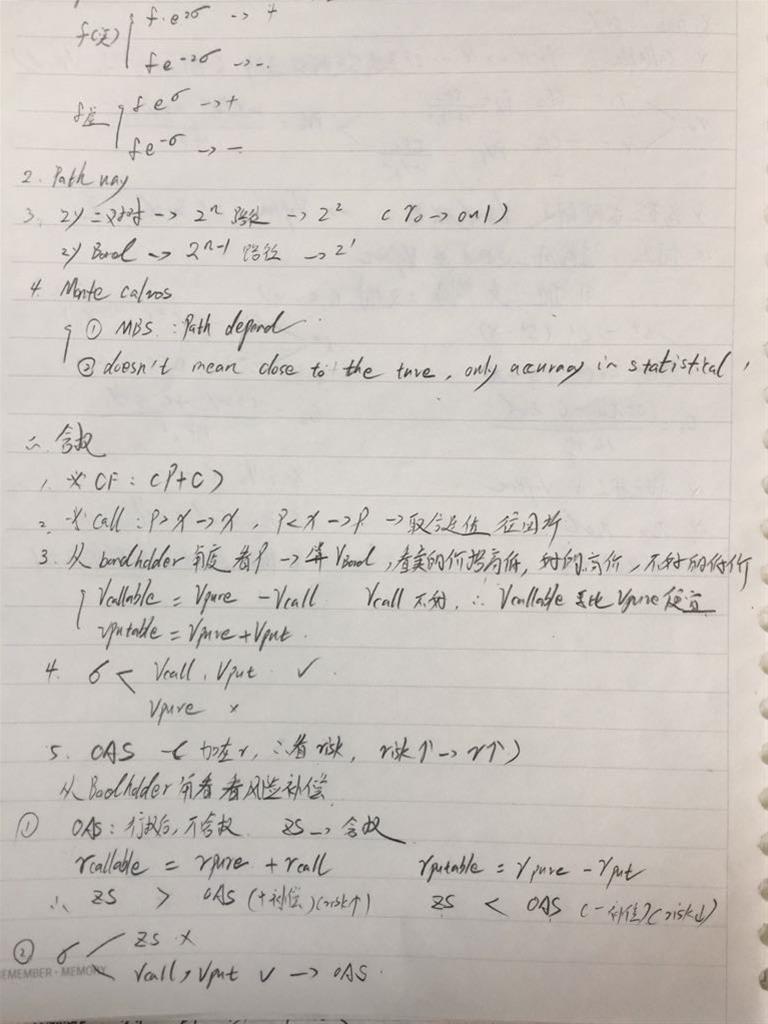 f(关) { f·e²σ → +
f e⁻²σ → -
{ f e^σ → +
f e^-σ → -
2. Path way
3. 2y 二叉树 → 2ⁿ 路径 → 2² (r₀ → only)
2y Bond → 2ⁿ⁻¹ 路径 → 2¹
4. Monte calros
① MBS : Path depend
② doesn't mean close to the ture, only accuracy in statistical,
二. 含权
1. 求 CF : (P+C)
2. 求 call : P>X → X, P<X → P → 取合适值 往回折
3. 从 bondholder 角度看 P → 算 VBond, 看卖的价格高低, 好的高价, 不好的低价
Vcallable = Vpure - Vcall Vcall 不好, ∴ Vcallable 要比 Vpure 便宜
Vputable = Vpure + Vput.
4. σ < Vcall, Vput ✓
Vpure ×
5. OAS → (加在 r, ∴看 risk, risk↑ → r↑)
从 Bondholder 角看 看风险补偿
① OAS : 行权后, 不含权 ZS → 含权
rcallable = rpure + rcall rputable = rpure - rput
∴ ZS > OAS (+补偿)(risk↑) ZS < OAS (-补偿)(risk↓)
② σ ZS ×
REMEMBER · MEMORY
Vcall, Vput ✓ → OAS.